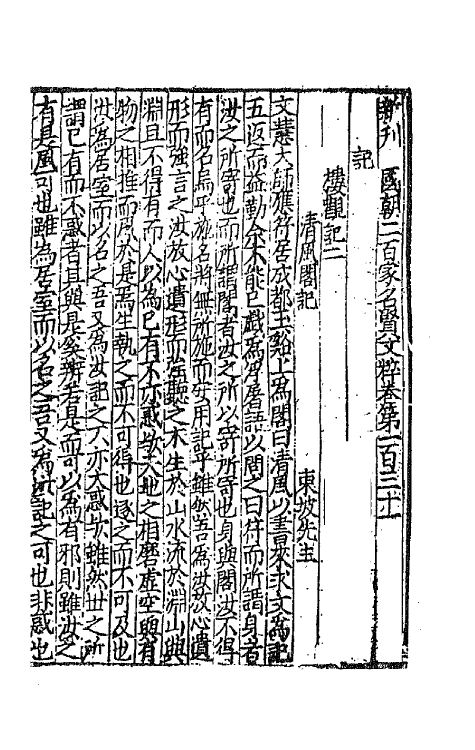 新刊國朝二百家名賢文粹卷第一百三十
記
樓觀記二
清風閣記
東坡先生
文慧大師應符居成都玉谿上為閣曰清風以書來求文為記
五返而益勤余不能已戲為浮屠語以問之曰符而所謂身者
汝之所寄也而所謂閣者汝之所以寄所寄也身與閣汝不得
有而名烏乎施名將無所施而安用記乎雖然吾為汝放心遺
形而強言之汝放心遺形而強聽之木生於山水流於淵山與
淵且不得有而人以為已有不亦惑歟天地之相磨虛空與有
物之相推而風於是焉生執之而不可得也逐之而不可及也
汝為居室而以名之吾又為汝記之不亦大惑歟雖然世之所
謂已有而不惑者其與是奚辨若是而可以為有邪則雖汝之
有是風可也雖為居室而以名之吾又為汝記之可也非惑也